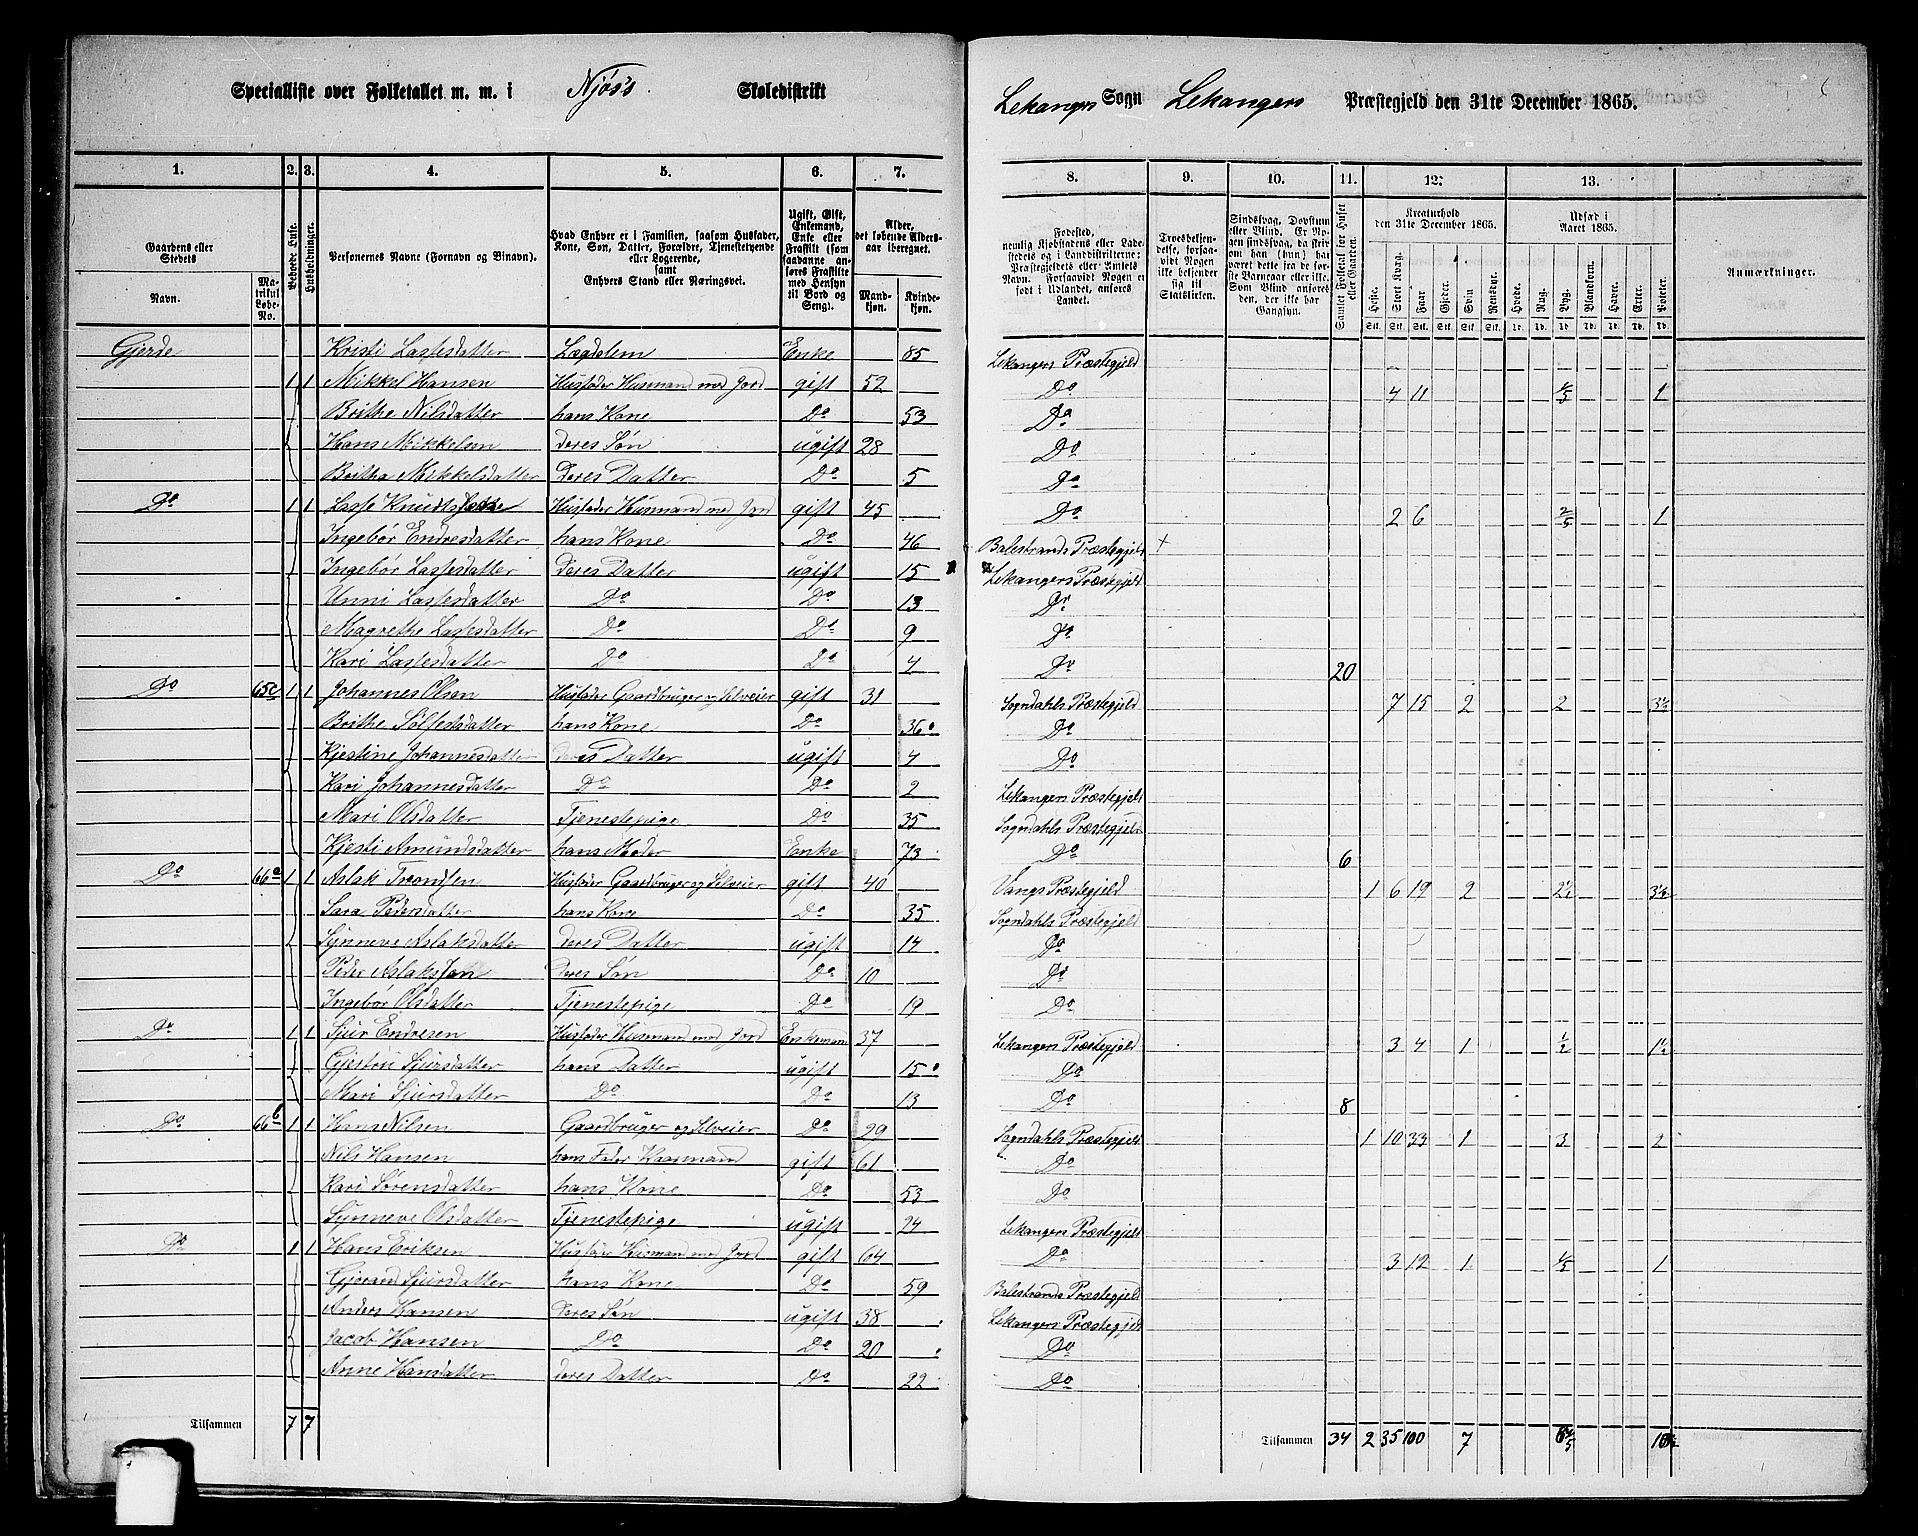 Specialliste over Folketallet m. m. i Njøs's Skoledistrikt Lekangers Sogn Lekangers Præstegjeld den 31te December 1865.
1. 2. 3. 4. 5. 6. 7. 8. 9. 10. 11. 12. 13.
Gaardens eller Stedets Navn. Matrikul Løbe-No. Beboede Huse. Husholdninger. Personernes Navne (Fornavn og Binavn). Hvad Enhver er i Familien, saasom Husfader, Kone, Søn, Datter, Forældre, Tjenestetyende eller Logerende, samt Enhvers Stand eller Næringsvei. Ugift, Gift, Enkemand, Enke eller Fraskilt (som saadanne anføres Fraskilte med Hensyn til Bord og Seng). Alder, det løbende Aldersaar iberegnet. Mandkjøn. Kvindekjøn.
Fødested, nemlig Kjøbstadens eller Ladestedets og i Landdistrikterne: Præstegjeldets eller Amtets Navn. Forsaavidt Nogen er født i Udlandet, anføres Landet. Troesbekjendelse, forsaavidt Nogen ikke bekjender sig til Statskirken. Sindssvag, Døvstum eller Blind. Er Nogen sindssvag, da skrives om han (hun) har været dette fra de første Barneaar eller ikke. Som Blind anføres den, der ikke har Gangsyn. Samlet Folketal for Huset eller Gaarden. Kreaturhold den 31te December 1865. Heste. Stort Kvæg. Faar. Gjeder. Svin. Rensdyr. Udsæd i Aaret 1865. Hvede. Rug. Byg. Blandkorn. Havre. Erter. Poteter. Anmærkninger.
Gjerde Kristi Lassesdatter Lægdslem Enke 85 Lekangers Præstegjeld
1 1 Mikkel Hansen Husfader Husmand med Jord gift 52 Do 4 11 4/5 1
Brithe Nilsdatter hans Kone Do 53 Do
Hans Mikkelsen deres Søn ugift 28 Do
Britha Mikkelsdatter Deres Datter Do 5 Do
Do 1 1 Lasse Knudts Husfader Husmand med Jord gift 45 Do 2 6 2/5 1
Ingebør Endresdatter hans Kone Do 46 Balestrands Præstegjeld +
Ingebør Lassesdatter Deres Datter ugift 15 Lekangers Præstegjeld
Unni Lassesdatter Do Do 13 Do
Magrethe Lassesdatter Do Do 9 Do
Kari Lassesdatter Do Do 4 Do 20
Do 65c 1 1 Johannes Olsen Husfader Gaardbruger og Selveier gift 31 Sogndahls Præstegjeld 7 15 2 2 3½
Brithe hans Kone Do 36 Do
Kjestine Johannesdatter deres Datter ugift 4 Do
Kari Johannesdatter Do Do 2 Lekangers Præstegjeld
Mari Olsdatter Tjenestepige Do 35 Sogndahls Præstegjeld
Kjesti Amundsdatter hans Moder Enke 73 Do 6
Do 66a 1 1 Aslak Trondsen Husfader Gaardbruger og Selveier gift 40 Vangs Præstegjeld 1 6 19 2 2½ 3½
Sara Pedersdatter hans Kone Do 35 Sogndahls Præstegjeld
Synneve Aslaksdatter deres Datter ugift 14 Do
Peder Aslaksson deres Søn Do 10 Do
Ingebør Olsdatter Tjenestepige Do 19 Do
Do 1 1 Sjur Endresen Husfader Husmand med Jord Enkemand 37 Lekangers Præstegjeld 3 4 1 ½ 1½
Sjursdatter hans Datter ugift 15 Do
Mari Sjursdatter Do Do 13 Do 8
Do 66b 1 1 Hans Nilsen Gaardbruger og Selveier Do 29 Sogndahls Præstegjeld 1 10 33 1 3 2
Nils Hansen hans Fader Kaarmand gift 61 Do
Kari Sørensdatter hans Kone Do 53 Do
Synneve Olsdatter Tjenestepige ugift 24 Lekangers Præstegjeld
Do 1 1 Hans Eriksen Husfader Husmand med Jord gift 64 Do 3 12 1 4/5 1
Gjerand Sjursdatter hans Kone Do 59 Balestrands Præstegjeld
Anders Hansen Deres Søn ugift 38 Lekangers Præstegjeld
Jacob Hansen Do Do 20 Do
Anne Hansdatter deres Datter Do 22 Do
Tilsammen 7 7 Tilsammen 34 2 35 100 7